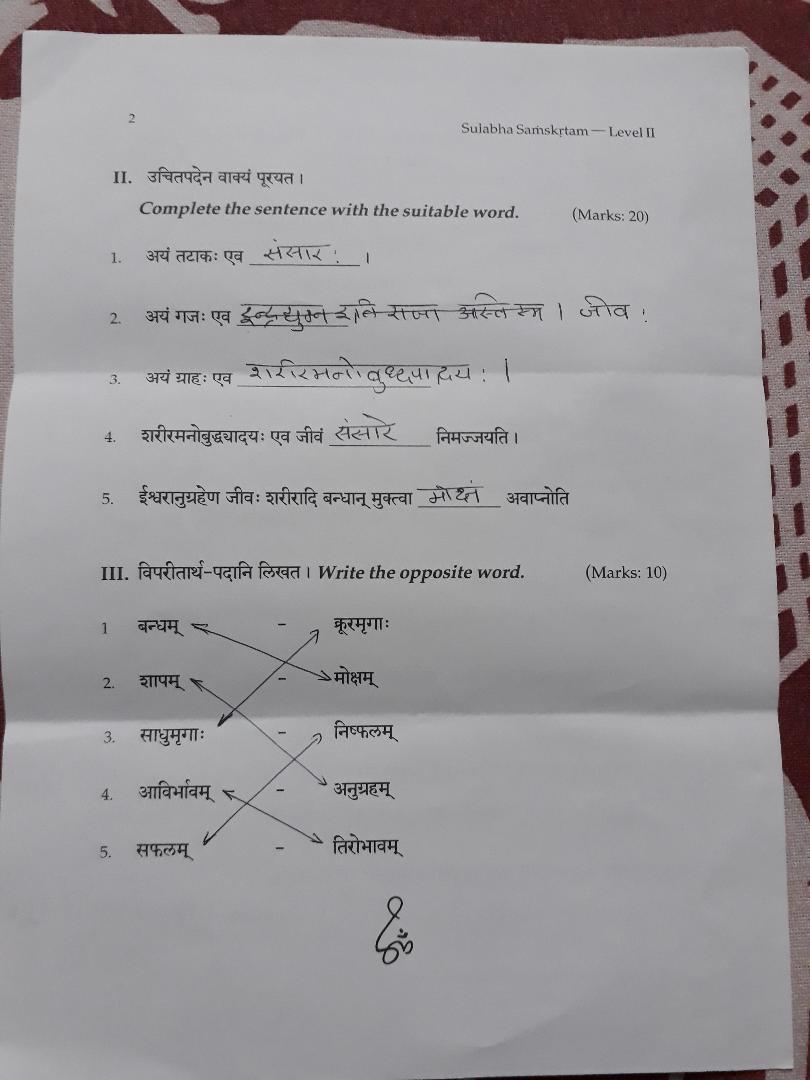 2
Sulabha Saṁskṛtam — Level II
II. उचितपदेन वाक्यं पूरयत ।
Complete the sentence with the suitable word. (Marks: 20)
1. अयं तटाकः एव संसारः ।
2. अयं गजः एव इन्द्रद्युम्न इति राजा अस्ति स्म । जीवः
3. अयं ग्राहः एव शरीरमनोबुध्द्यादयः ।
4. शरीरमनोबुद्ध्यादयः एव जीवं संसारे निमज्जयति ।
5. ईश्वरानुग्रहेण जीवः शरीरादि बन्धान् मुक्त्वा मोक्षं अवाप्नोति
III. विपरीतार्थ-पदानि लिखत । Write the opposite word. (Marks: 10)
1 बन्धम् - क्रूरमृगाः
2. शापम् - मोक्षम्
3. साधुमृगाः - निष्फलम्
4. आविर्भावम् - अनुग्रहम्
5. सफलम् - तिरोभावम्
ॐ